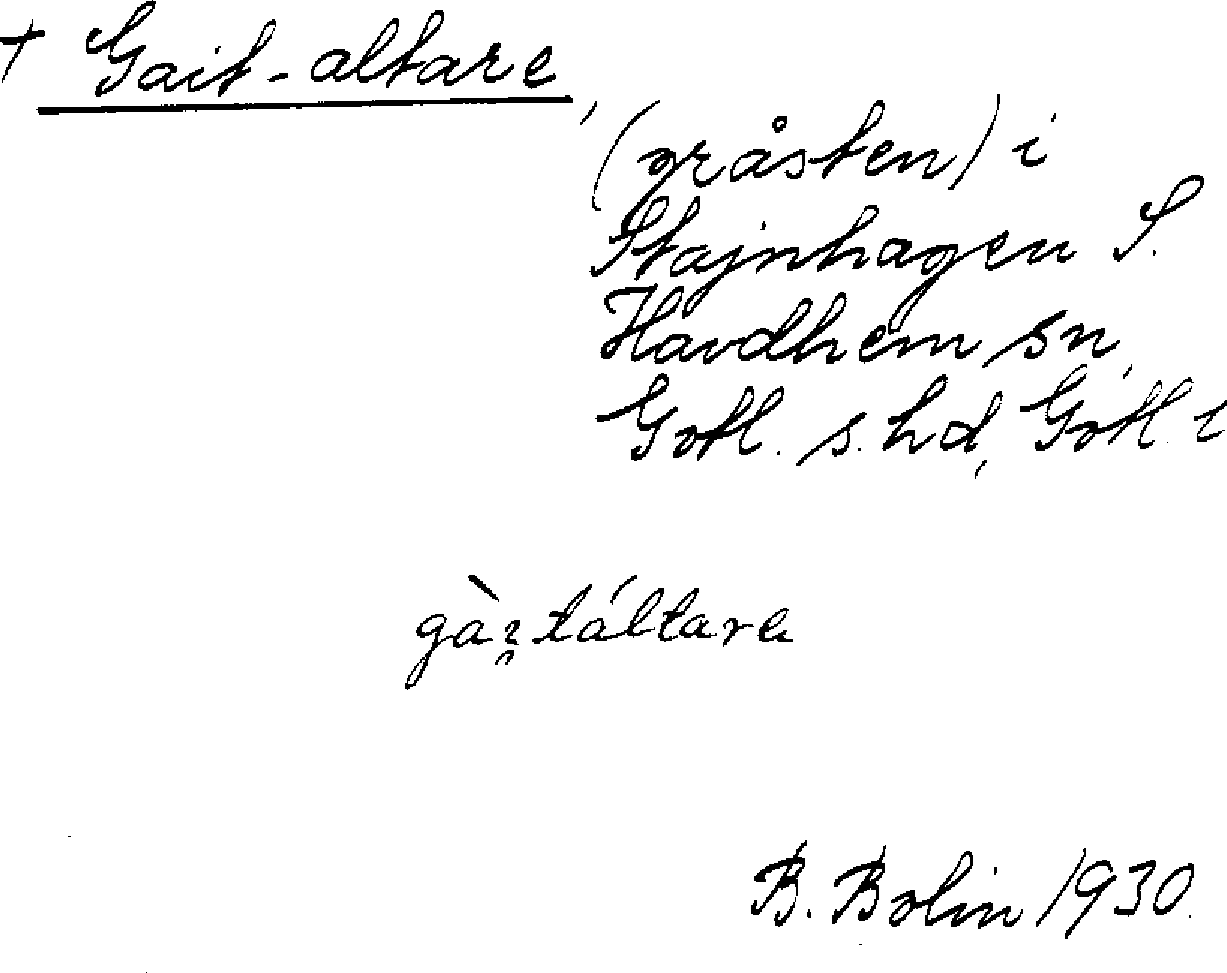 + Gait-altare,
(gråsten) i
Stajnhagen S.
Havdhem sn,
Gotl. s. hd, Gotl. l
gàı̯táltare
B. Bolin 1930.